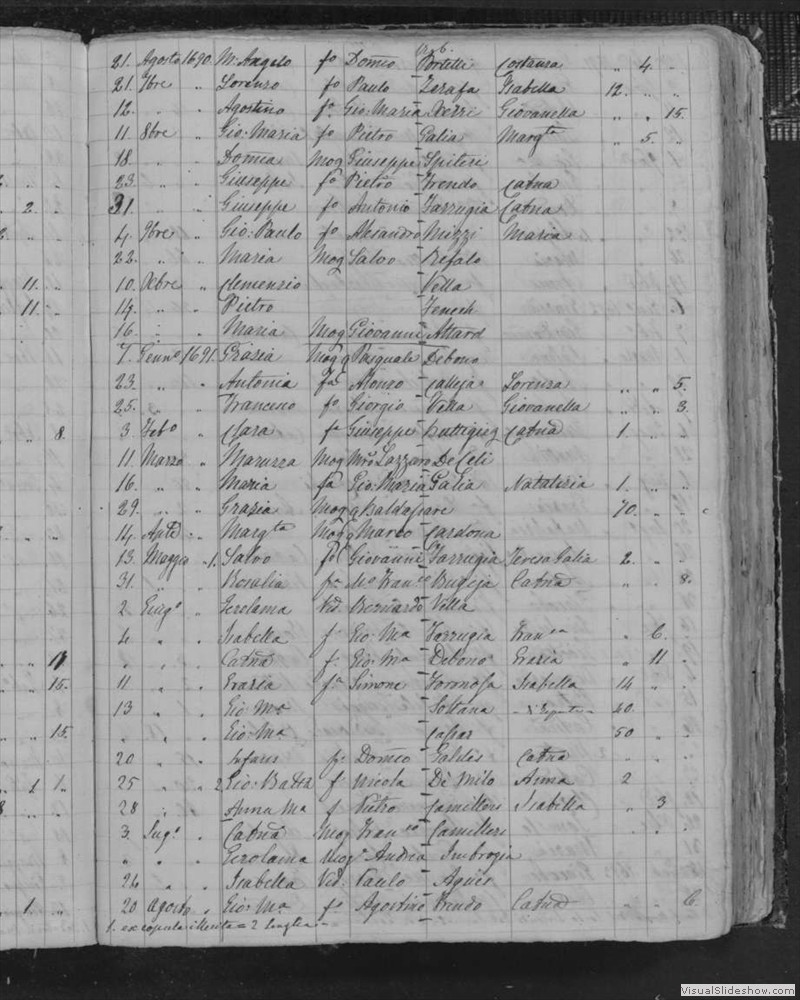 21. Agosto 1690. M: Angelo fo Domco Portelli Costanza „ 4. „
21. 7bre „ Lorenzo fo Paulo Zerafa Isabella 12. „ „
12. „ „ Agostino fo Gio: Maria Xerri Giovanella „ „ 15.
11. 8bre „ Gio: Maria fo Pietro Galia Margta „ 5. „
18. „ „ Domca Mog Giuseppe Spiteri
23. „ „ Giuseppe fo Pietro Frendo Catna
31. „ „ Giuseppe fo Antonio Farrugia Catna
4. 9bre „ Gio: Paulo fo Alesandro Mizzi Maria
22. „ „ Maria Mog Salvo Refalo
10. Xbre „ Clemenzio Vella
14. „ „ Pietro Zenech
16. „ „ Maria Mog Giovanni Attard
7. Genno 1691. Grazia Mog q Pasquale Debono
23. „ „ Antonia fa Alonso Calleja Lorenza „ „ 5.
25. „ „ Francesco fo Giorgio Vella Giovanella „ „ 3.
3. Febo „ Clara fa Giuseppe Buttigieg Catna 1. „ „
11. Marzo „ Maruzza Mog Mro Lazzaro De Celi
16. „ „ Maria fa Gio: Maria Galia Natalizia 1. „ „
29. „ „ Grazia Mog q Baldassare 70. „ „
14. Aple „ Margta Mog q Marco Cardona
13. Maggio „ 1. Salvo fo Giovanni Farrugia Teresa Galia 2. „
31. „ „ Rosalia fa Mo Franco Bugeja Catna „ „ 8.
2. Giugo „ Gerolama Vid. Bernardo Vella
4 „ „ Isabella fa Gio: Ma Farrugia Franca „ 6. „
„ „ „ Catna fa Gio: Ma Debono Grazia „ 11 „
11 „ „ Grazia fa Simone Formosa Isabella 14 „ „
13 „ „ Gio: Ma Soltana 40.
„ „ „ Gio: Ma Casar 50 „ „
20 „ „ fo Domco Galdes Catna
25 „ „ 2 Gio: Batta fo Nicola Di Milo Anna 2
28 „ „ Anna Ma f Pietro Camilleri Isabella „ 3
3. Lugo „ Catna Mog Franco Camilleri
„ „ „ Gerolama Mog Andrea Imbrogia
24 „ „ Isabella Vid. Paulo Agius
20 Agosto „ Gio: Ma fo Agostino Frendo Catna „ „ 6.
1. ex copula illecita = 2
8.
11.
15.
15.
VisualSlideshow.com